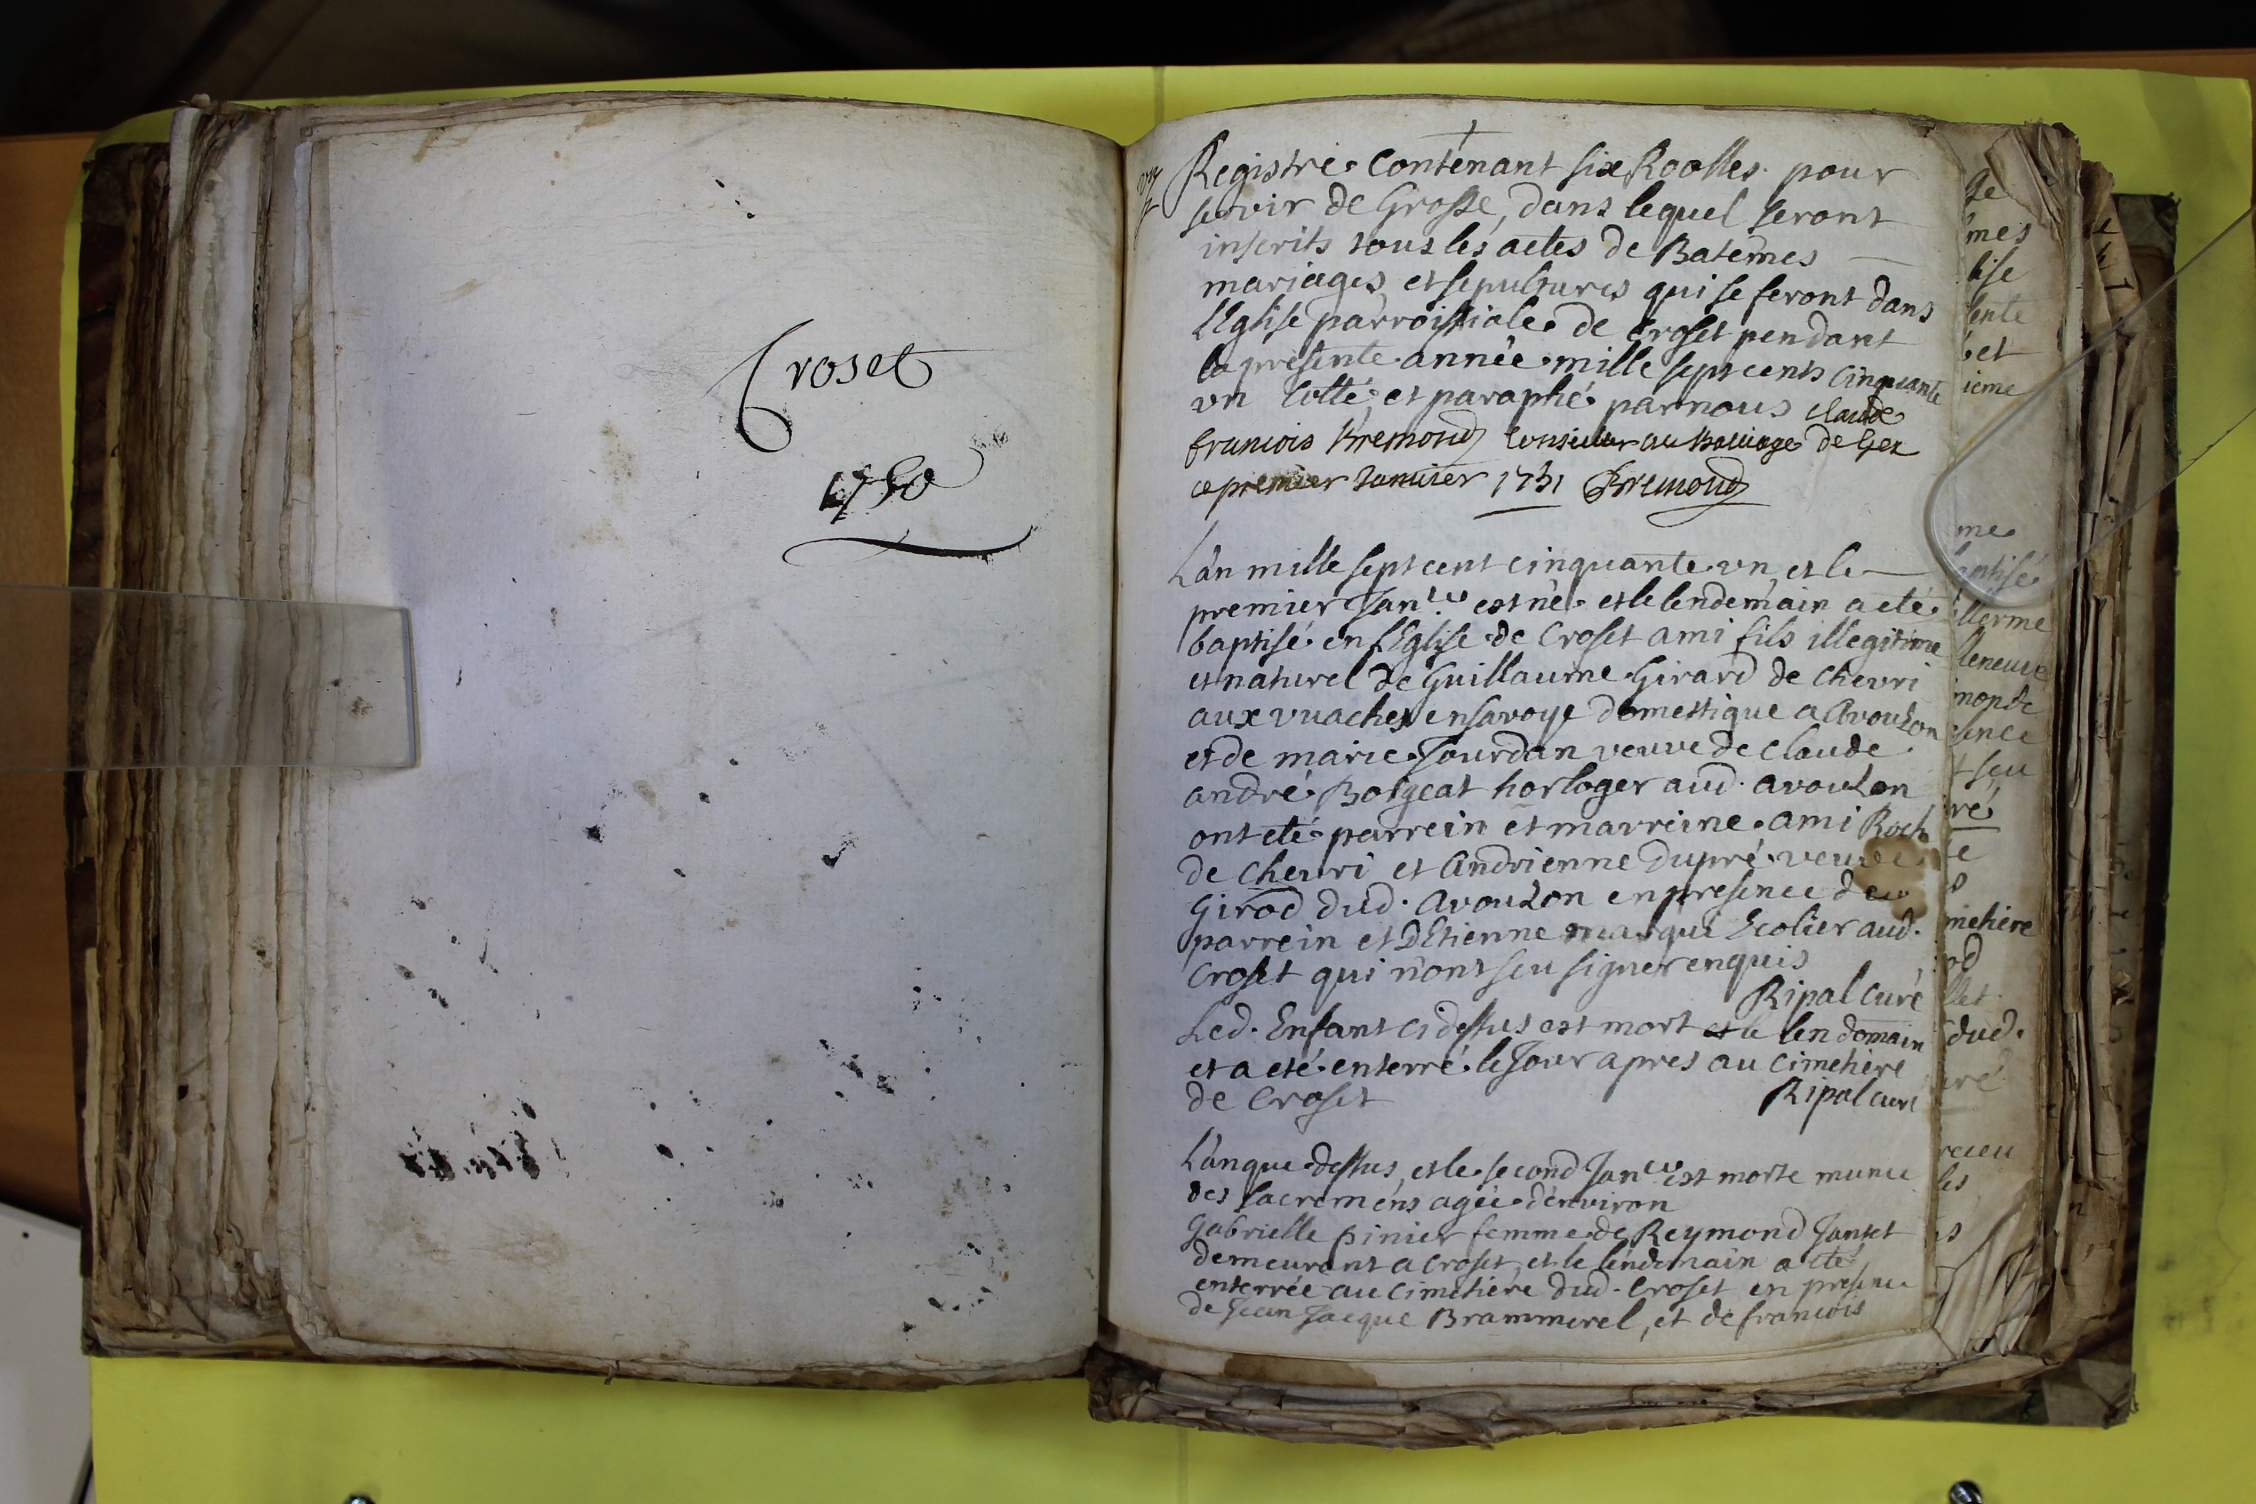 Croset
1750
Registre contenant six Roolles pour
servir de Grosse, dans lequel seront
inscrits tous les actes de Batêmes
mariages, et sepultures qui se feront dans
l'Eglise parroissiale de Croset pendant
la presente année mille sept cents cinquante
un Cotté, et paraphé par nous Claude
francois Bremond Conseiller au Balliage de Gex
ce premier Janvier 1751 Bremond
L'an mille sept cent cinquante un, et le
premier Janer est né et le lendemain a eté
baptisé en l'Eglise de Croset ami fils illegitime
et naturel de Guillaume Girard de Chevri
aux vuaches en savoye domestique a Avouzon
et de marie Jourdan veuve de claude
andré Borgeat horloger aud. avouzon
ont eté parrein et marreine ami Roch
de Chevri et Andrienne Dupré veuve
Girod dud. Avouzon en presence deu
parrein et D'Etienne marqui Ecolier aud.
Croset qui n'ont seu signer enquis
Ripal curé
Led. Enfant cidessus est mort le lendemain
et a eté enterré le Jour apres au cimetiere
de Croset
Ripal curé
L'an que dessus, et le second Janer est morte munie
des sacremens agée d'environ
Gabrielle pinier femme de Reymond Janset
demeurant a Croset, et le lendemain a eté
enterrée au Cimetiere dud. Croset en presence
de Jean Jacque Brammerel, et de francois
mes
ente
et
ieme
me
llerme
leneuve
seu
ré
metiere
dud.
receu
les